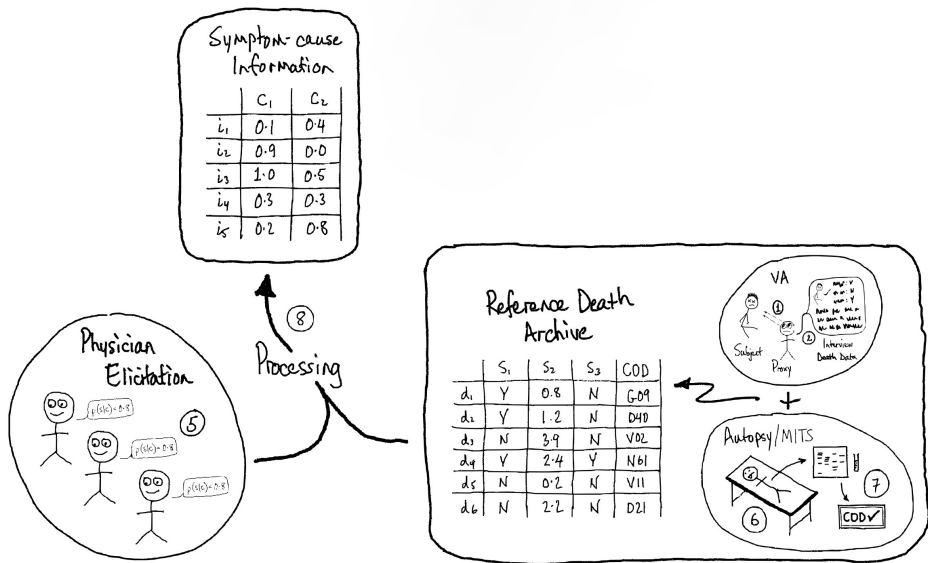 Symptom-cause
Information
C₁ C₂
i₁ 0.1 0.4
i₂ 0.9 0.0
i₃ 1.0 0.5
i₄ 0.3 0.3
i₅ 0.2 0.8
8
Processing
Physician
Elicitation
5
p(s|c)=0.8
p(s|c)=0.8
p(s|c)=0.8
Reference Death
Archive
S₁ S₂ S₃ COD
d₁ Y 0.8 N G09
d₂ Y 1.2 N D40
d₃ N 3.9 N V02
d₄ Y 2.4 Y N61
d₅ N 0.2 N V11
d₆ N 2.2 N D21
VA
1
2
Subject
Proxy
Interview
Death Data
+
Autopsy/MITS
6
7
COD ✓